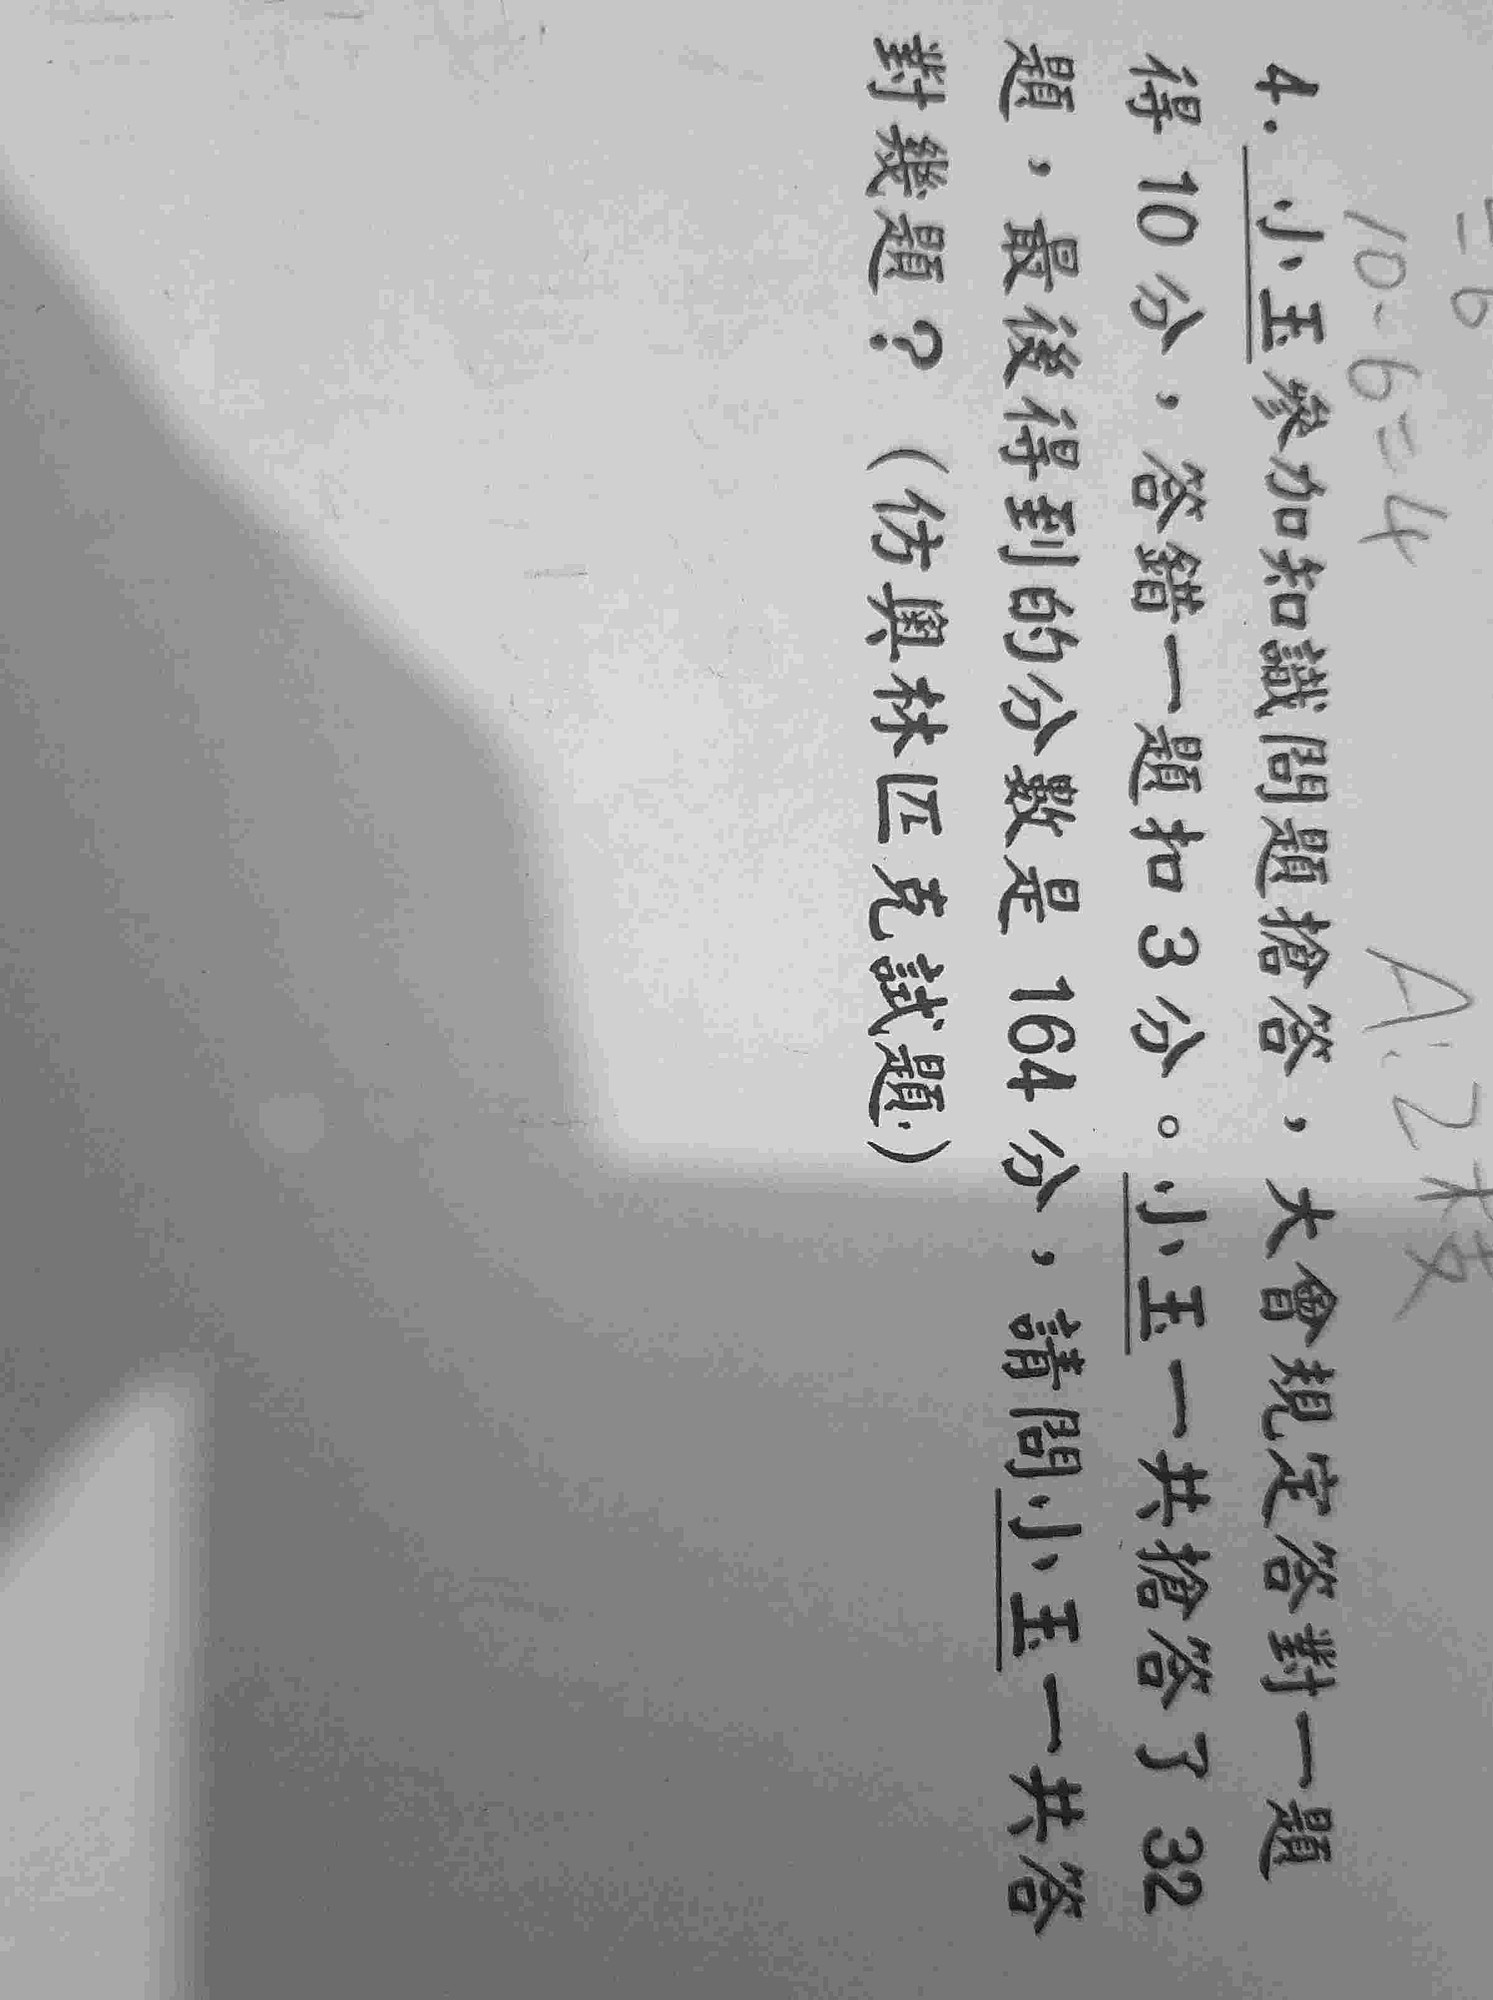 =6
10-6=4
A:2枝
4. 小玉參加知識問題搶答，大會規定答對一題
得 10 分，答錯一題扣 3 分。小玉一共搶答了 32
題，最後得到的分數是 164 分，請問小玉一共答
對幾題？（仿奧林匹克試題）